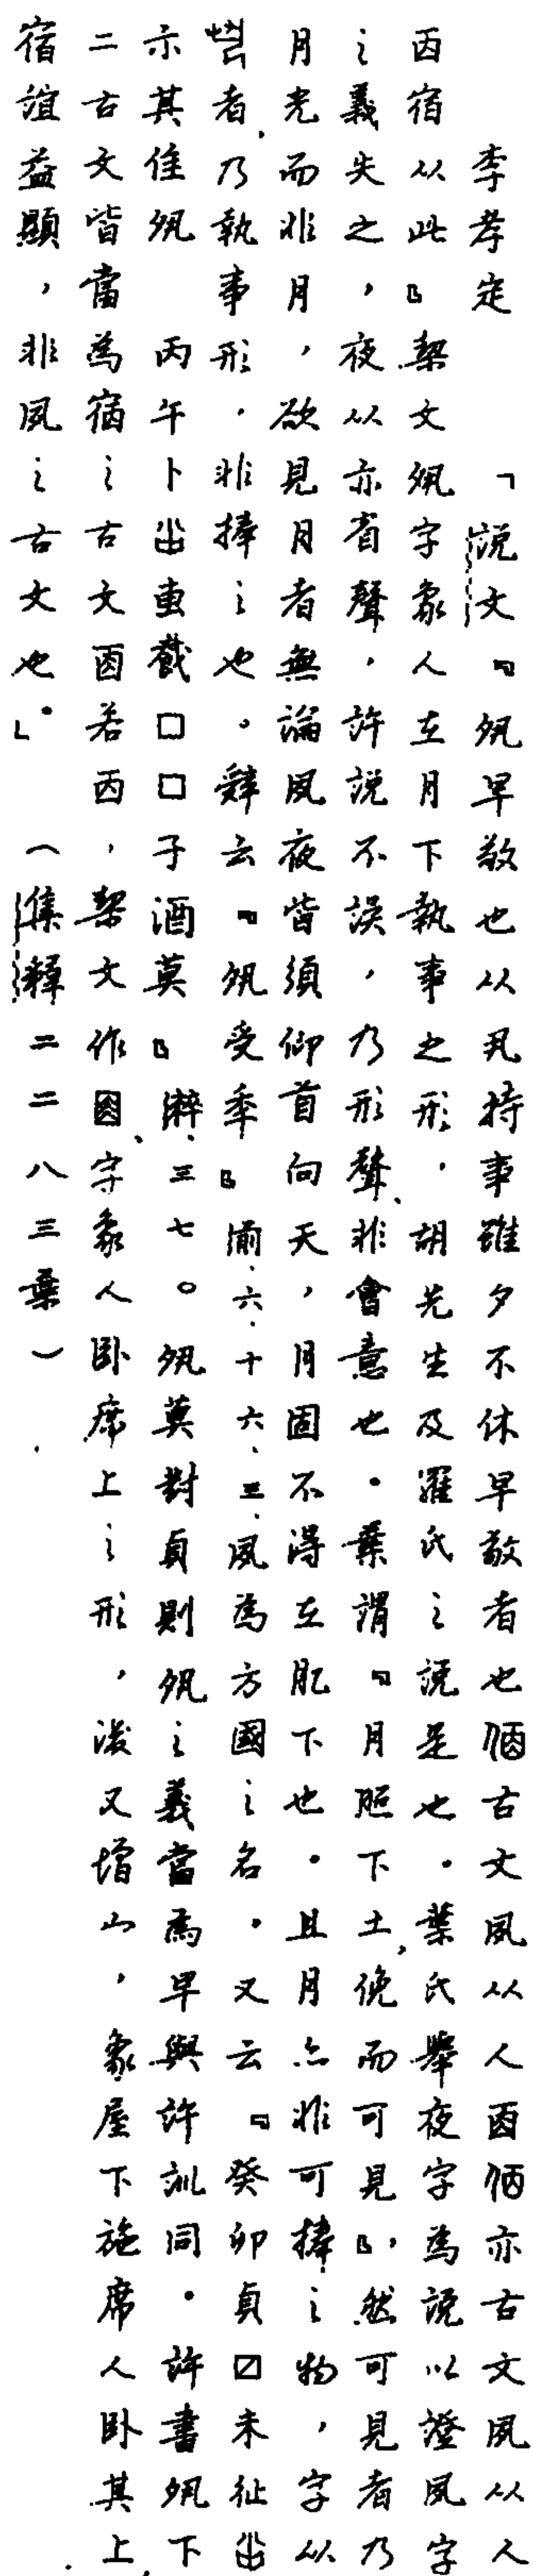 李孝定　「說文『夙早敬也从丮持事雖夕不休早敬者也𠈇古文夙从人㐁𠈈亦古文夙从人
㐁宿从此』契文夙字象人在月下執事之形，胡先生及羅氏之說是也。葉氏舉夜字為說以證夙字
之義失之，夜从亦省聲，許說不誤，乃形聲、非會意也。葉謂『月照下土，俛而可見』，然可見者乃
月光而非月，欲見月者無論夙夜皆須仰首向天，月固不得在丮下也。且月亦非可捧之物，字从
者，乃執事形，非捧之也。辭云『夙受年』前・六・十六・三、夙為方國之名。又云『癸卯貞☐未征
示其隹夙　丙午卜㞢叀㦰□□子酒莫』㵄・三七。夙莫對貞則夙之義當為早與許訓同。許書夙下
二古文皆當為宿之古文㐁若㐁，契文作、字象人卧席上之形，後又增宀，象屋下施席人卧其上，
宿誼益顯，非夙之古文也。」（集釋二二八三葉）